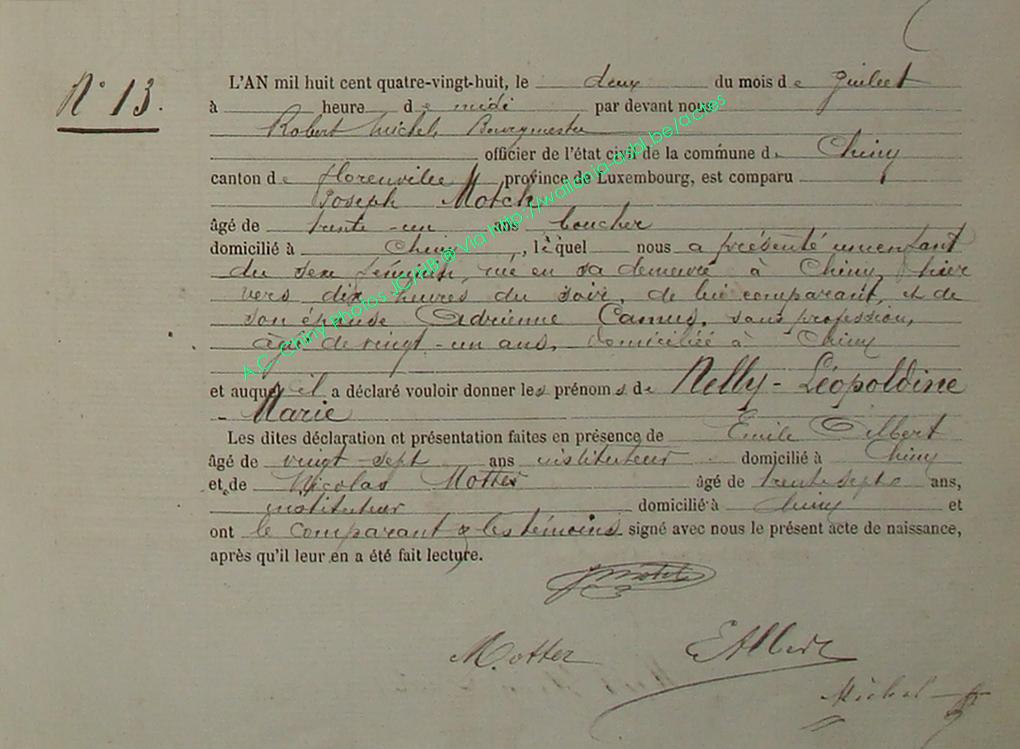 N° 13.
L'AN mil huit cent quatre-vingt-huit, le deux du mois de juillet
à heure de midi par devant nous
Robert Michel, Bourgmestre
officier de l'état civil de la commune de Chiny
canton de Florenville province de Luxembourg, est comparu
Joseph Motch
âgé de trente-un ans boucher
domicilié à Chiny, lequel nous a présenté un enfant
du sexe féminin, né en sa demeure à Chiny, hier
vers dix heures du soir, de lui comparant, et de
son épouse Adrienne Camus, sans profession,
âgée de vingt-un ans, domiciliée à Chiny
et auquel il a déclaré vouloir donner les prénoms de Nelly-Léopoldine
-Marie
Les dites déclaration et présentation faites en présence de Emile
âgé de vingt-sept ans instituteur domicilié à Chiny
et de Nicolas Motter âgé de trente sept ans,
instituteur domicilié à Chiny et
ont le comparant & les témoins signé avec nous le présent acte de naissance,
après qu'il leur en a été fait lecture.
Motter
Michel
A.C. Chiny Photos JCMB ® Via http://wallonia-asbl.be/actes